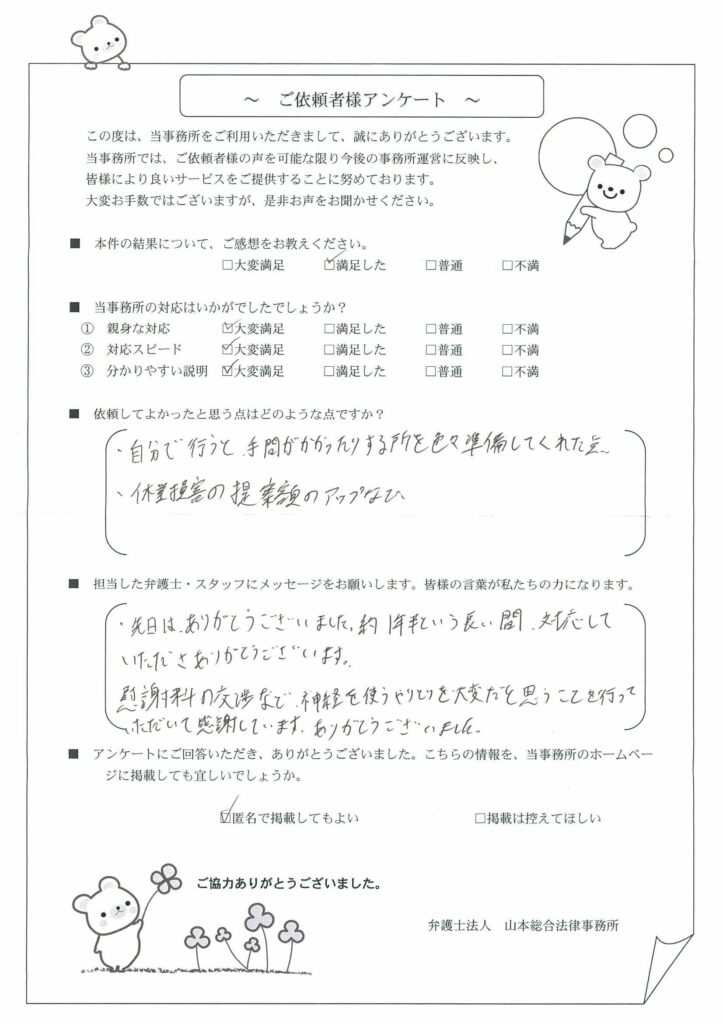 ～　ご依頼者様アンケート　～
この度は、当事務所をご利用いただきまして、誠にありがとうございます。
当事務所では、ご依頼者様の声を可能な限り今後の事務所運営に反映し、
皆様により良いサービスをご提供することに努めております。
大変お手数ではございますが、是非お声をお聞かせください。
■　本件の結果について、ご感想をお教えください。
□大変満足　☑満足した　□普通　□不満
■　当事務所の対応はいかがでしたでしょうか？
①　親身な対応　☑大変満足　□満足した　□普通　□不満
②　対応スピード　☑大変満足　□満足した　□普通　□不満
③　分かりやすい説明　☑大変満足　□満足した　□普通　□不満
■　依頼してよかったと思う点はどのような点ですか？
・自分で行うと手間がかかったりする所を色々準備してくれた点
・休業損害の提案額のアップなど
■　担当した弁護士・スタッフにメッセージをお願いします。皆様の言葉が私たちの力になります。
・先日は、ありがとうございました。約1年半という長い間、対応して
いただきありがとうございます。
慰謝料の交渉など、神経を使うやりとりを大変だと思うことを行って
いただいて感謝しています。ありがとうございました。
■　アンケートにご回答いただき、ありがとうございました。こちらの情報を、当事務所のホームペー
ジに掲載しても宜しいでしょうか。
☑匿名で掲載してもよい　□掲載は控えてほしい
ご協力ありがとうございました。
弁護士法人　山本総合法律事務所